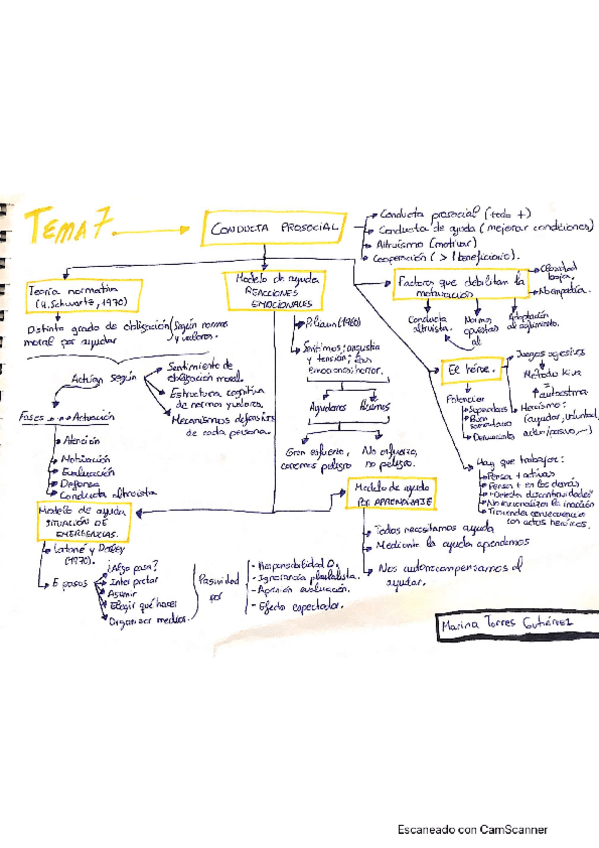 TEMA 7
CONDUCTA PROSOCIAL
Conducta prosocial (todo +)
Conducta de ayuda (mejorar condiciones)
Altruismo (motivar)
Cooperación (> 1 beneficiario).
Teoría normativa
(H. Schwartz, 1970)
Distinto grado de obligación
moral por ayudar
Según normas
y valores.
Actúan según
Sentimiento de
obligación moral.
Estructura cognitiva
de normas y valores.
Mecanismos defensivos
de cada persona.
Fases
Activación
Atención
Motivación
Evaluación
Defensa
Conducta altruista
Modelo de ayuda
REACCIONES
EMOCIONALES
Piliavin (1980)
Sentimos: angustia
y tensión
emocional: horror.
Ayudamos
Huimos
Gran esfuerzo,
caremos peligro
No esfuerzo,
no peligro.
Factores que debilitan la
motivación
Claridad
baja.
No empatía.
Conducta
altruista.
Normas
opuestas
al
Adaptación
al sufrimiento.
El héroe.
Potenciar
Juegos agresivos
Método Kiva
autoestima
Heroísmo:
(ayudador, voluntad,
Denunciante
Hay que trabajar:
Pensar + activas
Pensar + en los demás
No racionalizar la inacción
Trascender consecuencias
con actos heroicos.
Modelo de ayuda
SITUACIÓN DE
EMERGENCIAS.
Latané y Darley
(1970).
5 pasos
¿Algo pasa?
Interpretar
Asumir
Elegir qué hacer
Organizar medios.
Pasividad
por
- Responsabilidad D.
- Ignorancia pluralista.
- Aprensión evaluación.
- Efecto espectador.
Modelo de ayuda
DE APRENDIZAJE
Todos necesitamos ayuda
Mediante la ayuda aprendemos
Nos autorrecompensamos al
ayudar.
Marina Torres Gutiérrez
Escaneado con CamScanner